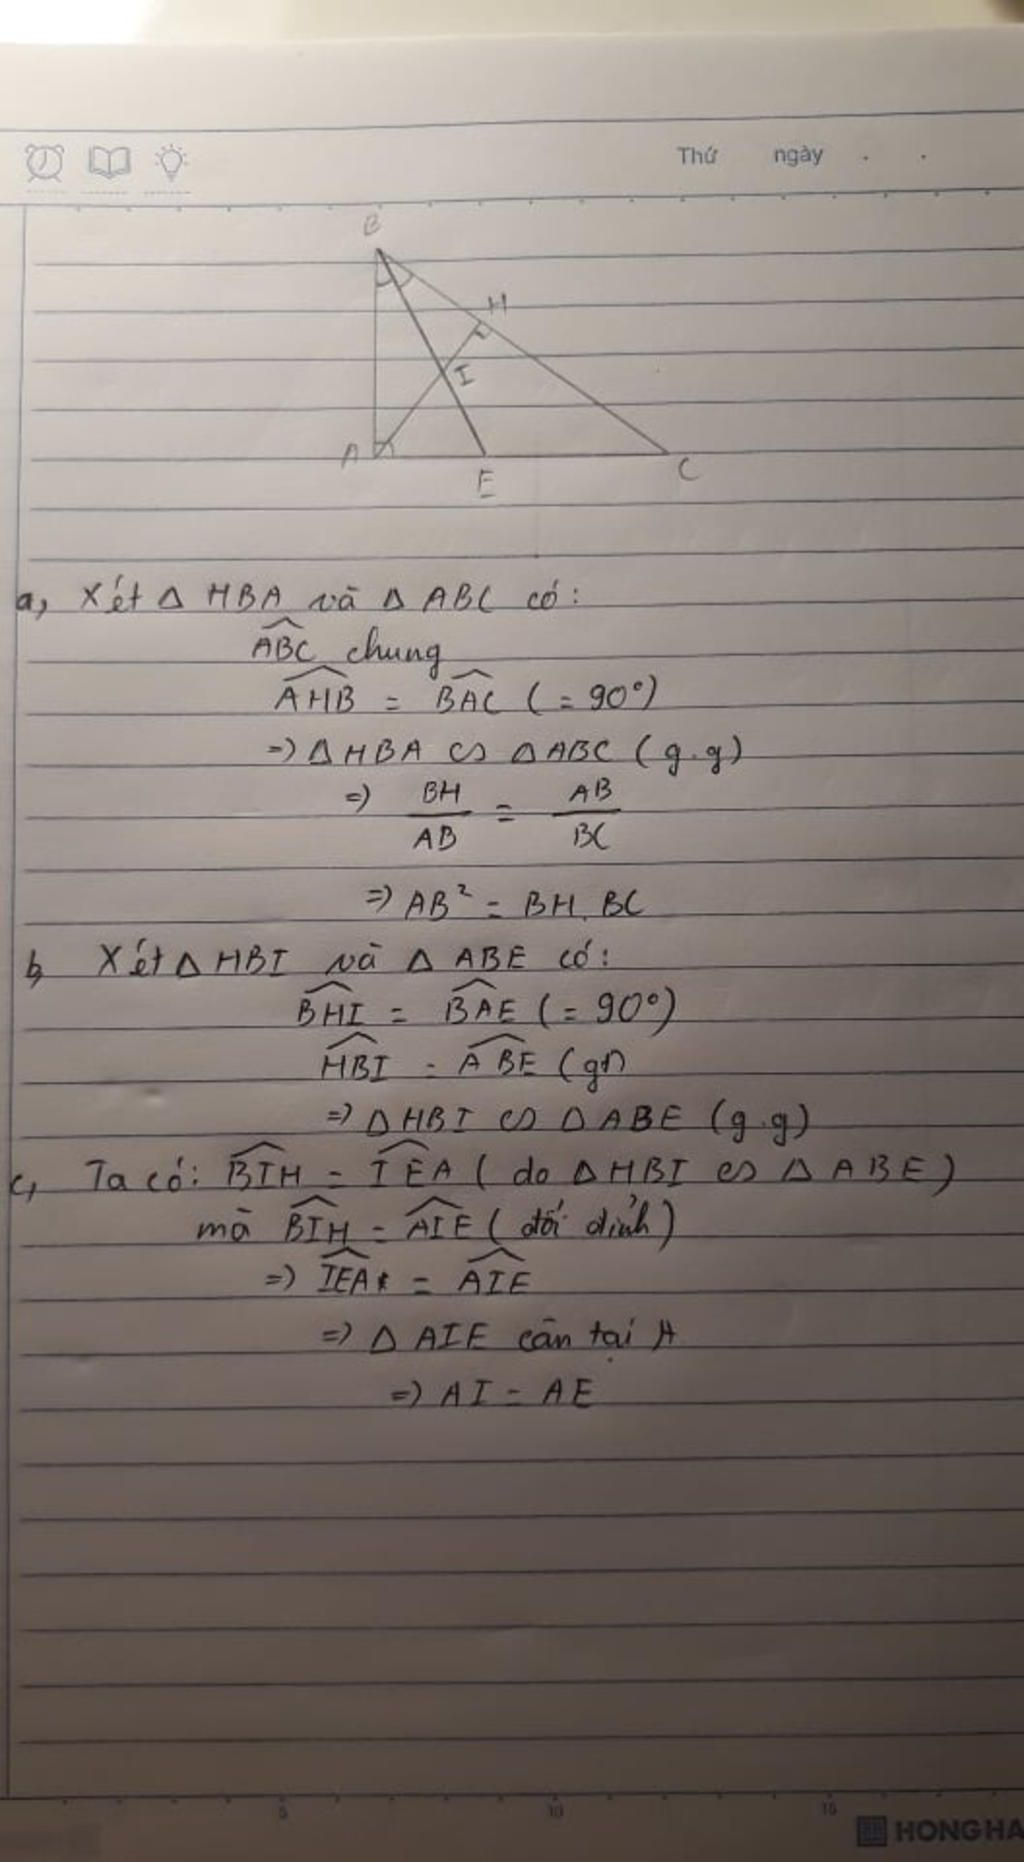 Thứ ngày . .
B
H
I
A
E
C
a, Xét Δ HBA và Δ ABC có:
$\widehat{ABC}$ chung
$\widehat{AHB}$ = $\widehat{BAC}$ (= 90°)
=) Δ HBA ∽ Δ ABC (g.g)
=) $\frac{BH}{AB}$ = $\frac{AB}{BC}$
=) AB² = BH. BC
b, Xét Δ HBI và Δ ABE có:
$\widehat{BHI}$ = $\widehat{BAE}$ (= 90°)
$\widehat{HBI}$ = $\widehat{ABE}$ (gt)
=) Δ HBI ∽ Δ ABE (g.g)
c, Ta có: $\widehat{BIH}$ = $\widehat{IEA}$ (do Δ HBI ∽ Δ ABE)
mà $\widehat{BIH}$ = $\widehat{AIE}$ (đối đỉnh)
=) $\widehat{IEA}$ = $\widehat{AIE}$
=) Δ AIE cân tại A
=) AI = AE
5 10 15
HONG HA